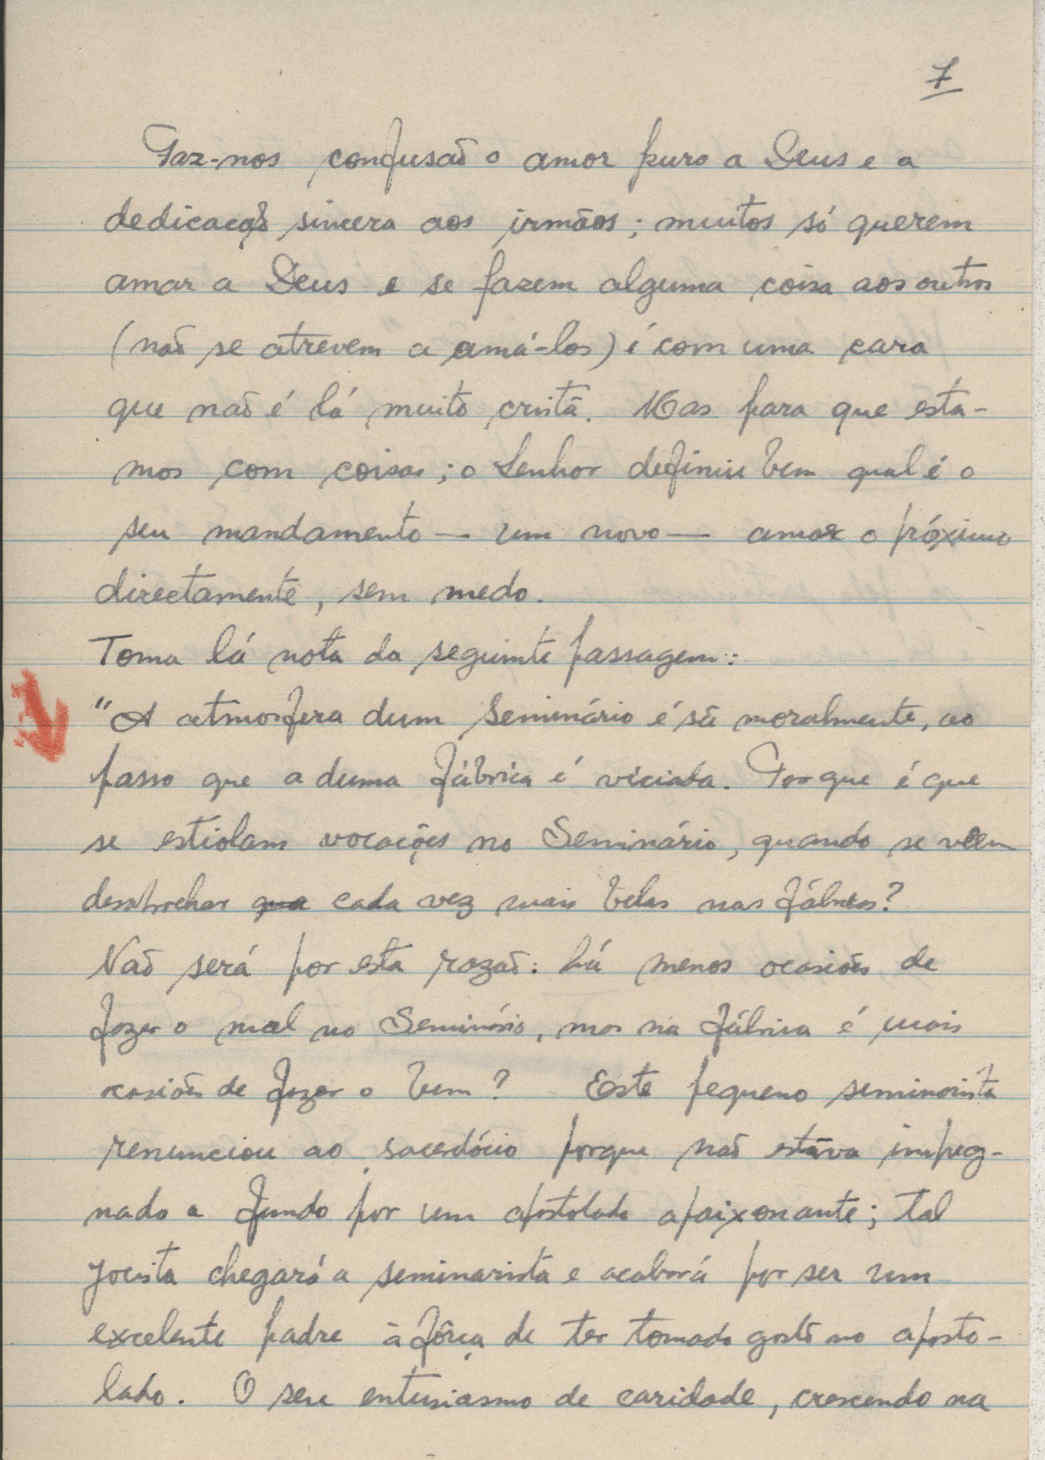 7
Faz-nos confusaõ o amor puro a Deus e a
dedicação sincera aos irmãos; muitos só querem
amar a Deus e se fazem alguma coisa aos outros
(naõ se atrevem a amá-los) é com uma cara
que naõ é lá muito cristã. Mas para que esta-
mos com coisas; o Senhor definiu bem qual é o
seu mandamento — um novo — amar o próximo
directamente, sem medo.
Toma lá nota da seguinte passagem:
"A atmosfera dum Seminário é sã moralmente, ao
passo que a duma fábrica é viciada. Porque é que
se estiolam vocações no Seminário, quando se vêem
desabrochar que cada vez mais belas nas fábricas?
Naõ será por esta razaõ: há menos ocasiões de
fazer o mal no Seminário, mas na fábrica é mais
ocasiões de fazer o bem? Este pequeno seminarista
renunciou ao sacerdócio porque naõ estava impreg-
nado a fundo por um apostolado apaixonante; tal
jocista chegará a seminarista e acabará por ser um
excelente padre à fôrça de ter tomado gosto no aposto-
lado. O seu entusiasmo de caridade, crescendo na